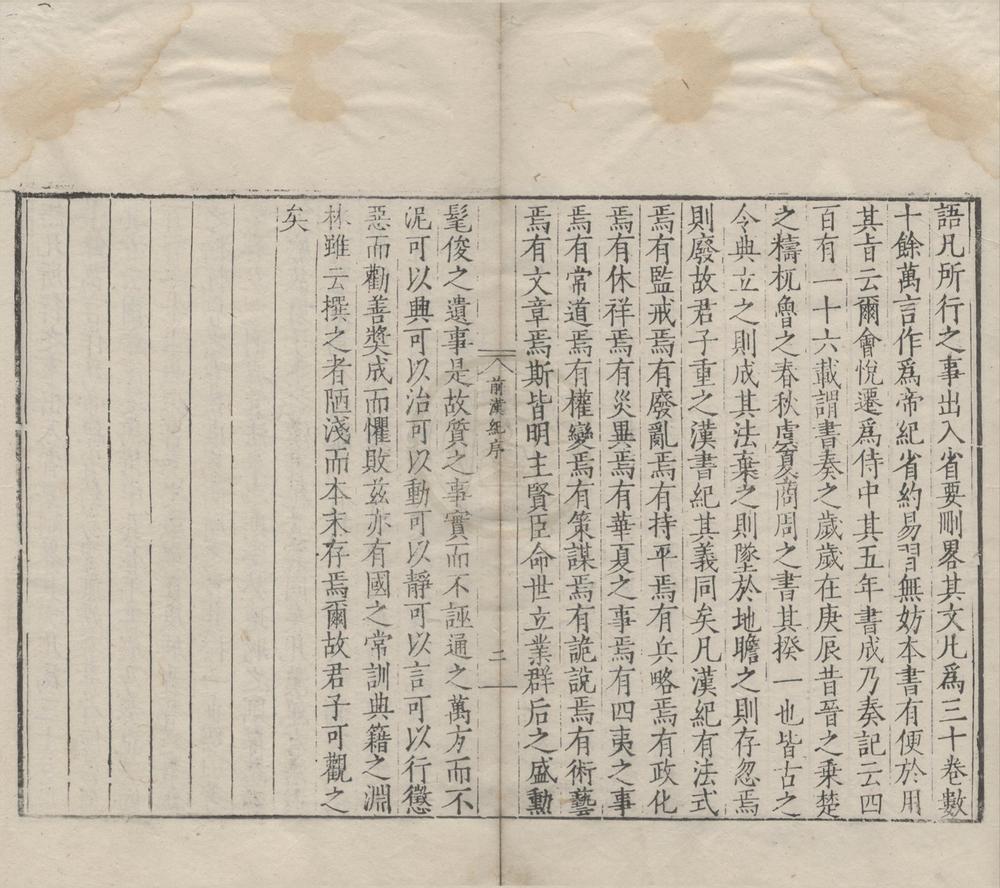 語凡所行之事出入省要刪畧其文凡爲三十卷數
十餘萬言作爲帝紀省約易習無妨本書有便於用
其㫖云爾會悅遷爲侍中其五年書成乃奏記云四
百有一十六載謂書奏之歲歲在庚辰昔晉之乗楚
之檮杌魯之春秋虞夏商周之書其揆一也皆古之
令典立之則成其法棄之則墜於地瞻之則存忽焉
則廢故君子重之漢書紀其義同矣凡漢紀有法式
焉有監戒焉有廢亂焉有持平焉有兵略焉有政化
焉有休祥焉有災異焉有華夏之事焉有四夷之事
焉有常道焉有權變焉有策謀焉有詭說焉有術藝
焉有文章焉斯皆明主賢臣命世立業群后之盛勲
前漢紀序
二
髦俊之遺事是故質之事實而不誣通之萬方而不
泥可以興可以治可以動可以靜可以言可以行懲
惡而勸善奬成而懼敗兹亦有國之常訓典籍之淵
林雖云撰之者陋淺而本末存焉爾故君子可觀之
矣